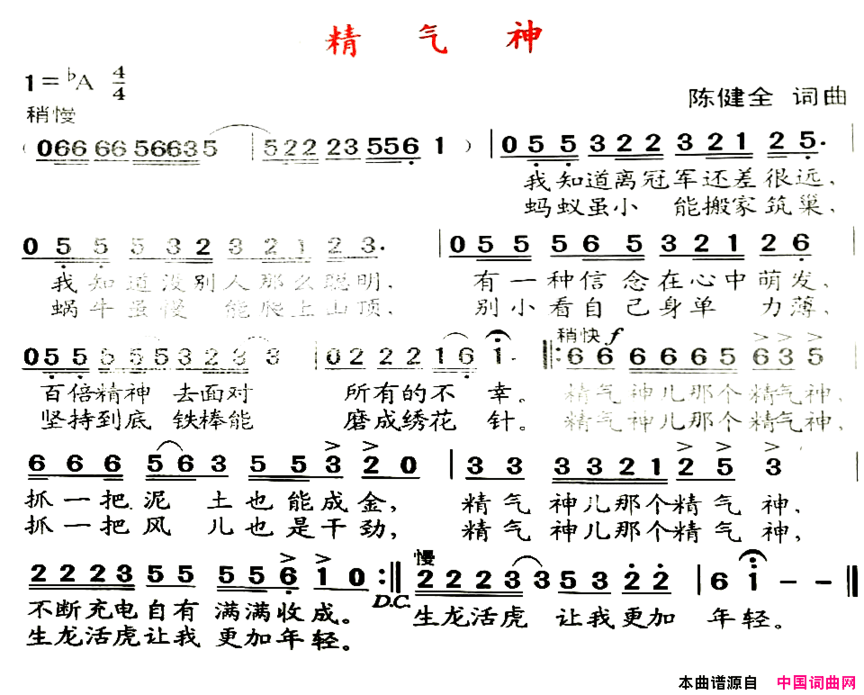 精 气 神
1=♭A 4/4
稍慢
陈健全 词曲
(066 66 56635 | 5222 23 5561) | 055 322 321 25.
我知道离冠军还差很远、
蚂蚁虽小 能搬家筑巢、
0555 32321 23. | 055 565 321 26
我知道没别人那么聪明、 有一种信念在心中萌发、
蜗牛虽慢 能爬上山顶、 别小看自己身单 力薄、
稍快 f
055555323 3 | 0222 216 1. ‖: 66 6665 635
百倍精神 去面对 所有的不 幸。 精气神儿那个精气神、
坚持到底 铁棒能 磨成绣花 针。 精气神儿那个精气神、
666 563 553 20 | 33 3321 25 3
抓一把泥 土也能成金, 精气神儿那个精气神、
抓一把风 儿也是干劲, 精气神儿那个精气神、
慢
2223 55 556 10 :‖ 2223 353 22 | 6 1 - - ‖
D.C.
不断充电自有 满满收成。 生龙活虎 让我更加 年轻。
生龙活虎让我 更加年轻。
本曲谱源自 中国词曲网